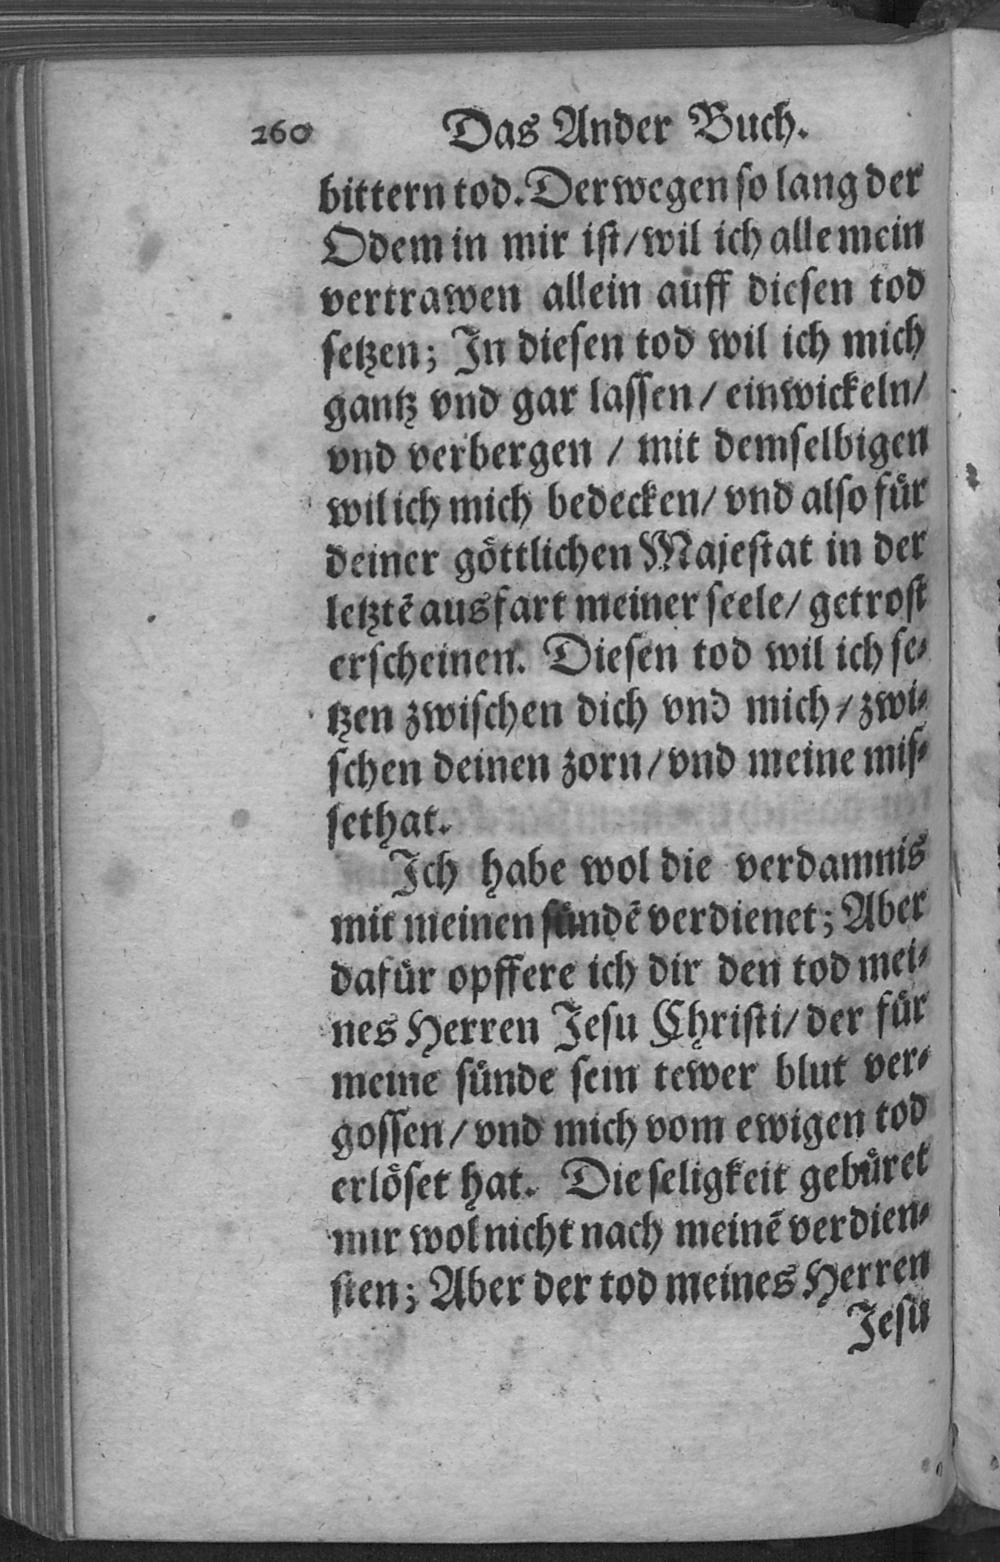 260 Das Ander Buch.
bittern tod. Derwegen so lang der
Odem in mir ist/ wil ich alle mein
vertrawen allein auff diesen tod
setzen; In diesen tod wil ich mich
gantz vnd gar lassen/ einwickeln/
vnd verbergen / mit demselbigen
wil ich mich bedecken/ vnd also für
deiner göttlichen Majestat in der
letztē ausfart meiner seele/ getrost
erscheinen. Diesen tod wil ich se-
tzen zwischen dich vnd mich/ zwi-
schen deinen zorn/ vnd meine mis-
sethat.
Ich habe wol die verdamnis
mit meinen sündē verdienet; Aber
dafür opffere ich dir den tod mei-
nes Herren Jesu Christi/ der für
meine sünde sein tewer blut ver-
gossen/ vnd mich vom ewigen tod
erlöset hat. Die seligkeit gebüret
mir wol nicht nach meinē verdien-
sten; Aber der tod meines Herren
Jesu